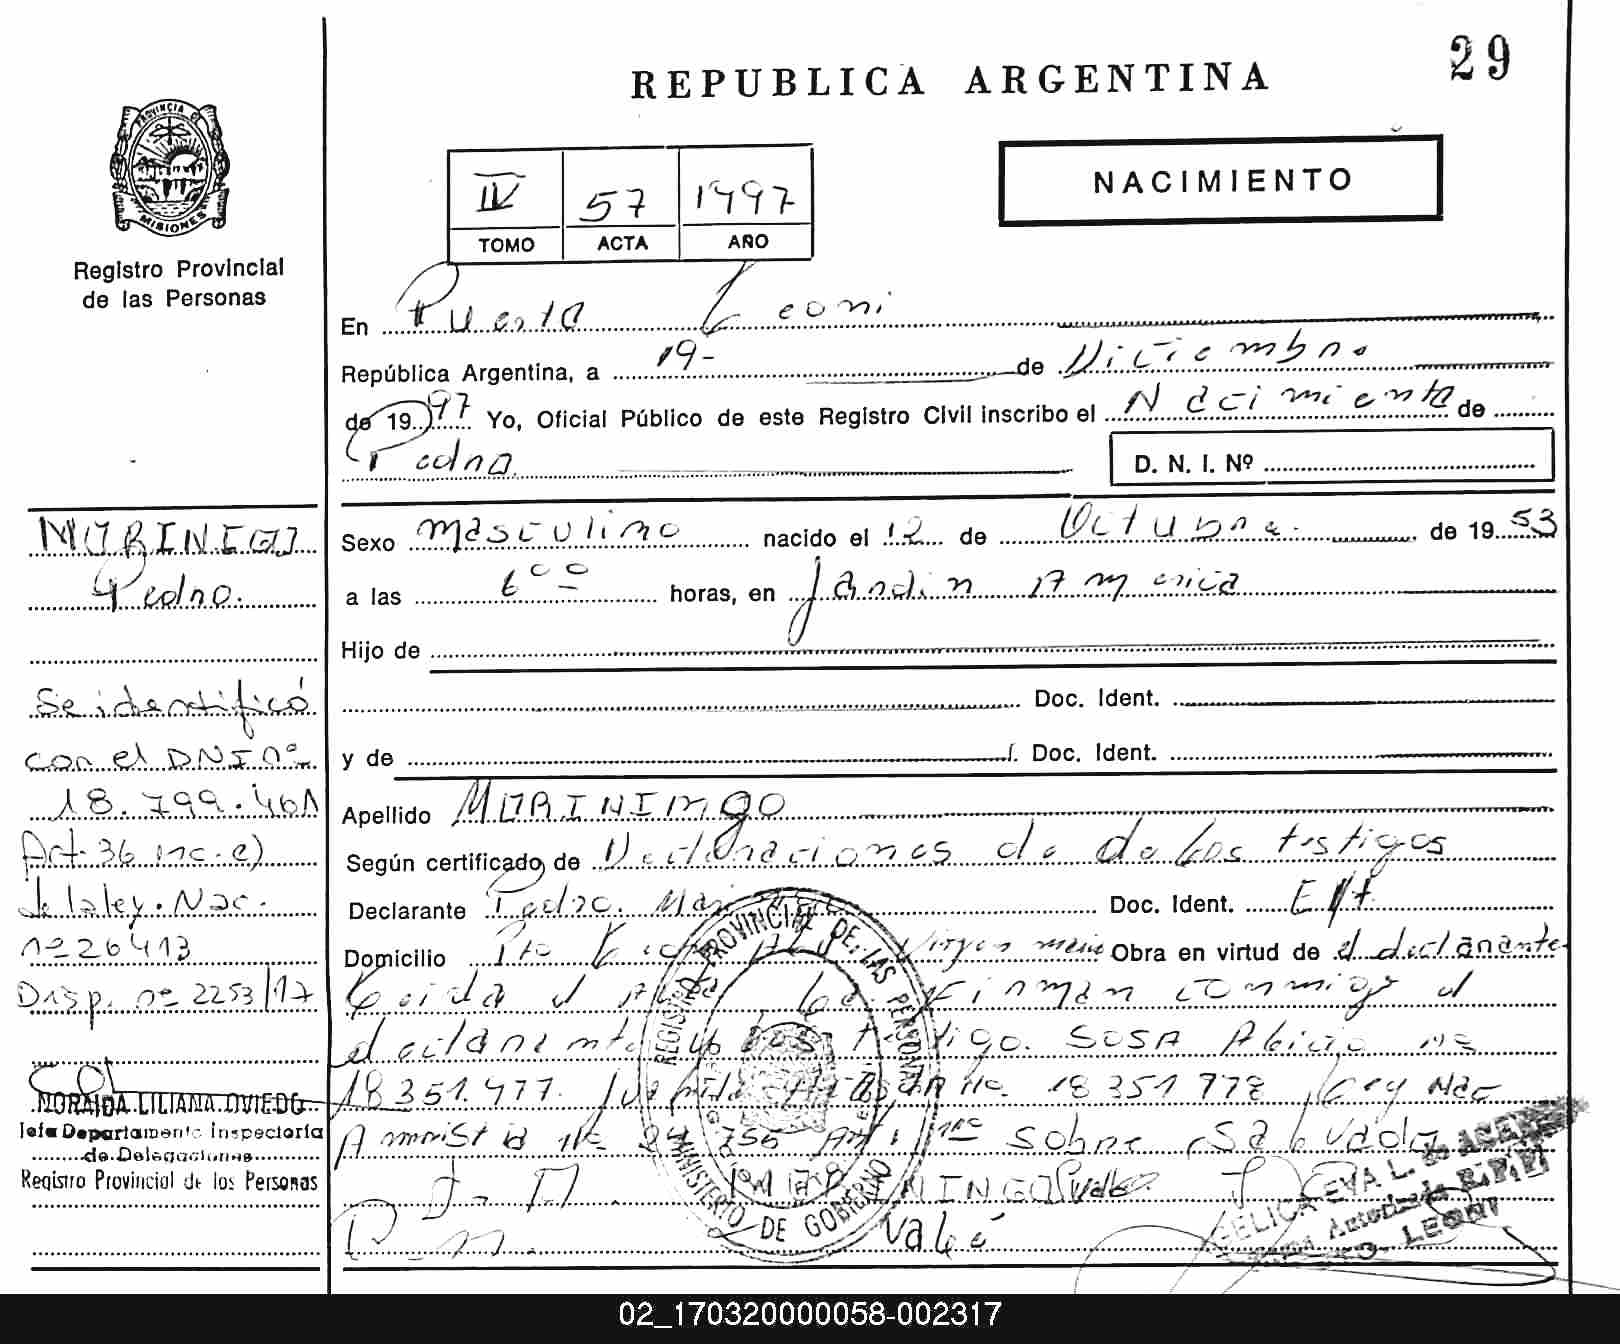 29
REPUBLICA ARGENTINA
PROVINCIA DE
MISIONES
Registro Provincial
de las Personas
IV 57 1997
TOMO ACTA AÑO
NACIMIENTO
En Puerto Leoni
República Argentina, a 19- de Diciembre
de 1997 Yo, Oficial Público de este Registro Civil inscribo el Nacimiento de
Pedro
D. N. I. Nº
Sexo masculino nacido el 12 de Octubre de 1953
a las 6 00 horas, en Jardin America
Hijo de
Doc. Ident.
y de Doc. Ident.
Apellido MORINIMgo
Según certificado de Declaraciones de de los testigos
Declarante Pedro Doc. Ident.
Domicilio Pto Virgen Obra en virtud de el declarante
Leida el Acta la Firman conmigo el
declarante SOSA
18 351.477 18 351 778 Ley Nac
Amnistia nº 756 sobre
NINGO
Vale
MORINIGO
Pedro.
Se identificó
con el DNI nº
18.799.461
Art. 36 inc. e)
de la ley. Nac.
nº 26413
Disp. nº 2253/17
NORAIDA LILIANA OVIEDO
Jefa Departamento Inspectoría
de Delegaciones
Registro Provincial de los Personas
REGISTRO PROVINCIAL DE LAS PERSONAS
MINISTERIO DE GOBIERNO
EVA L.
Autorizada
LEONI
02_170320000058-002317